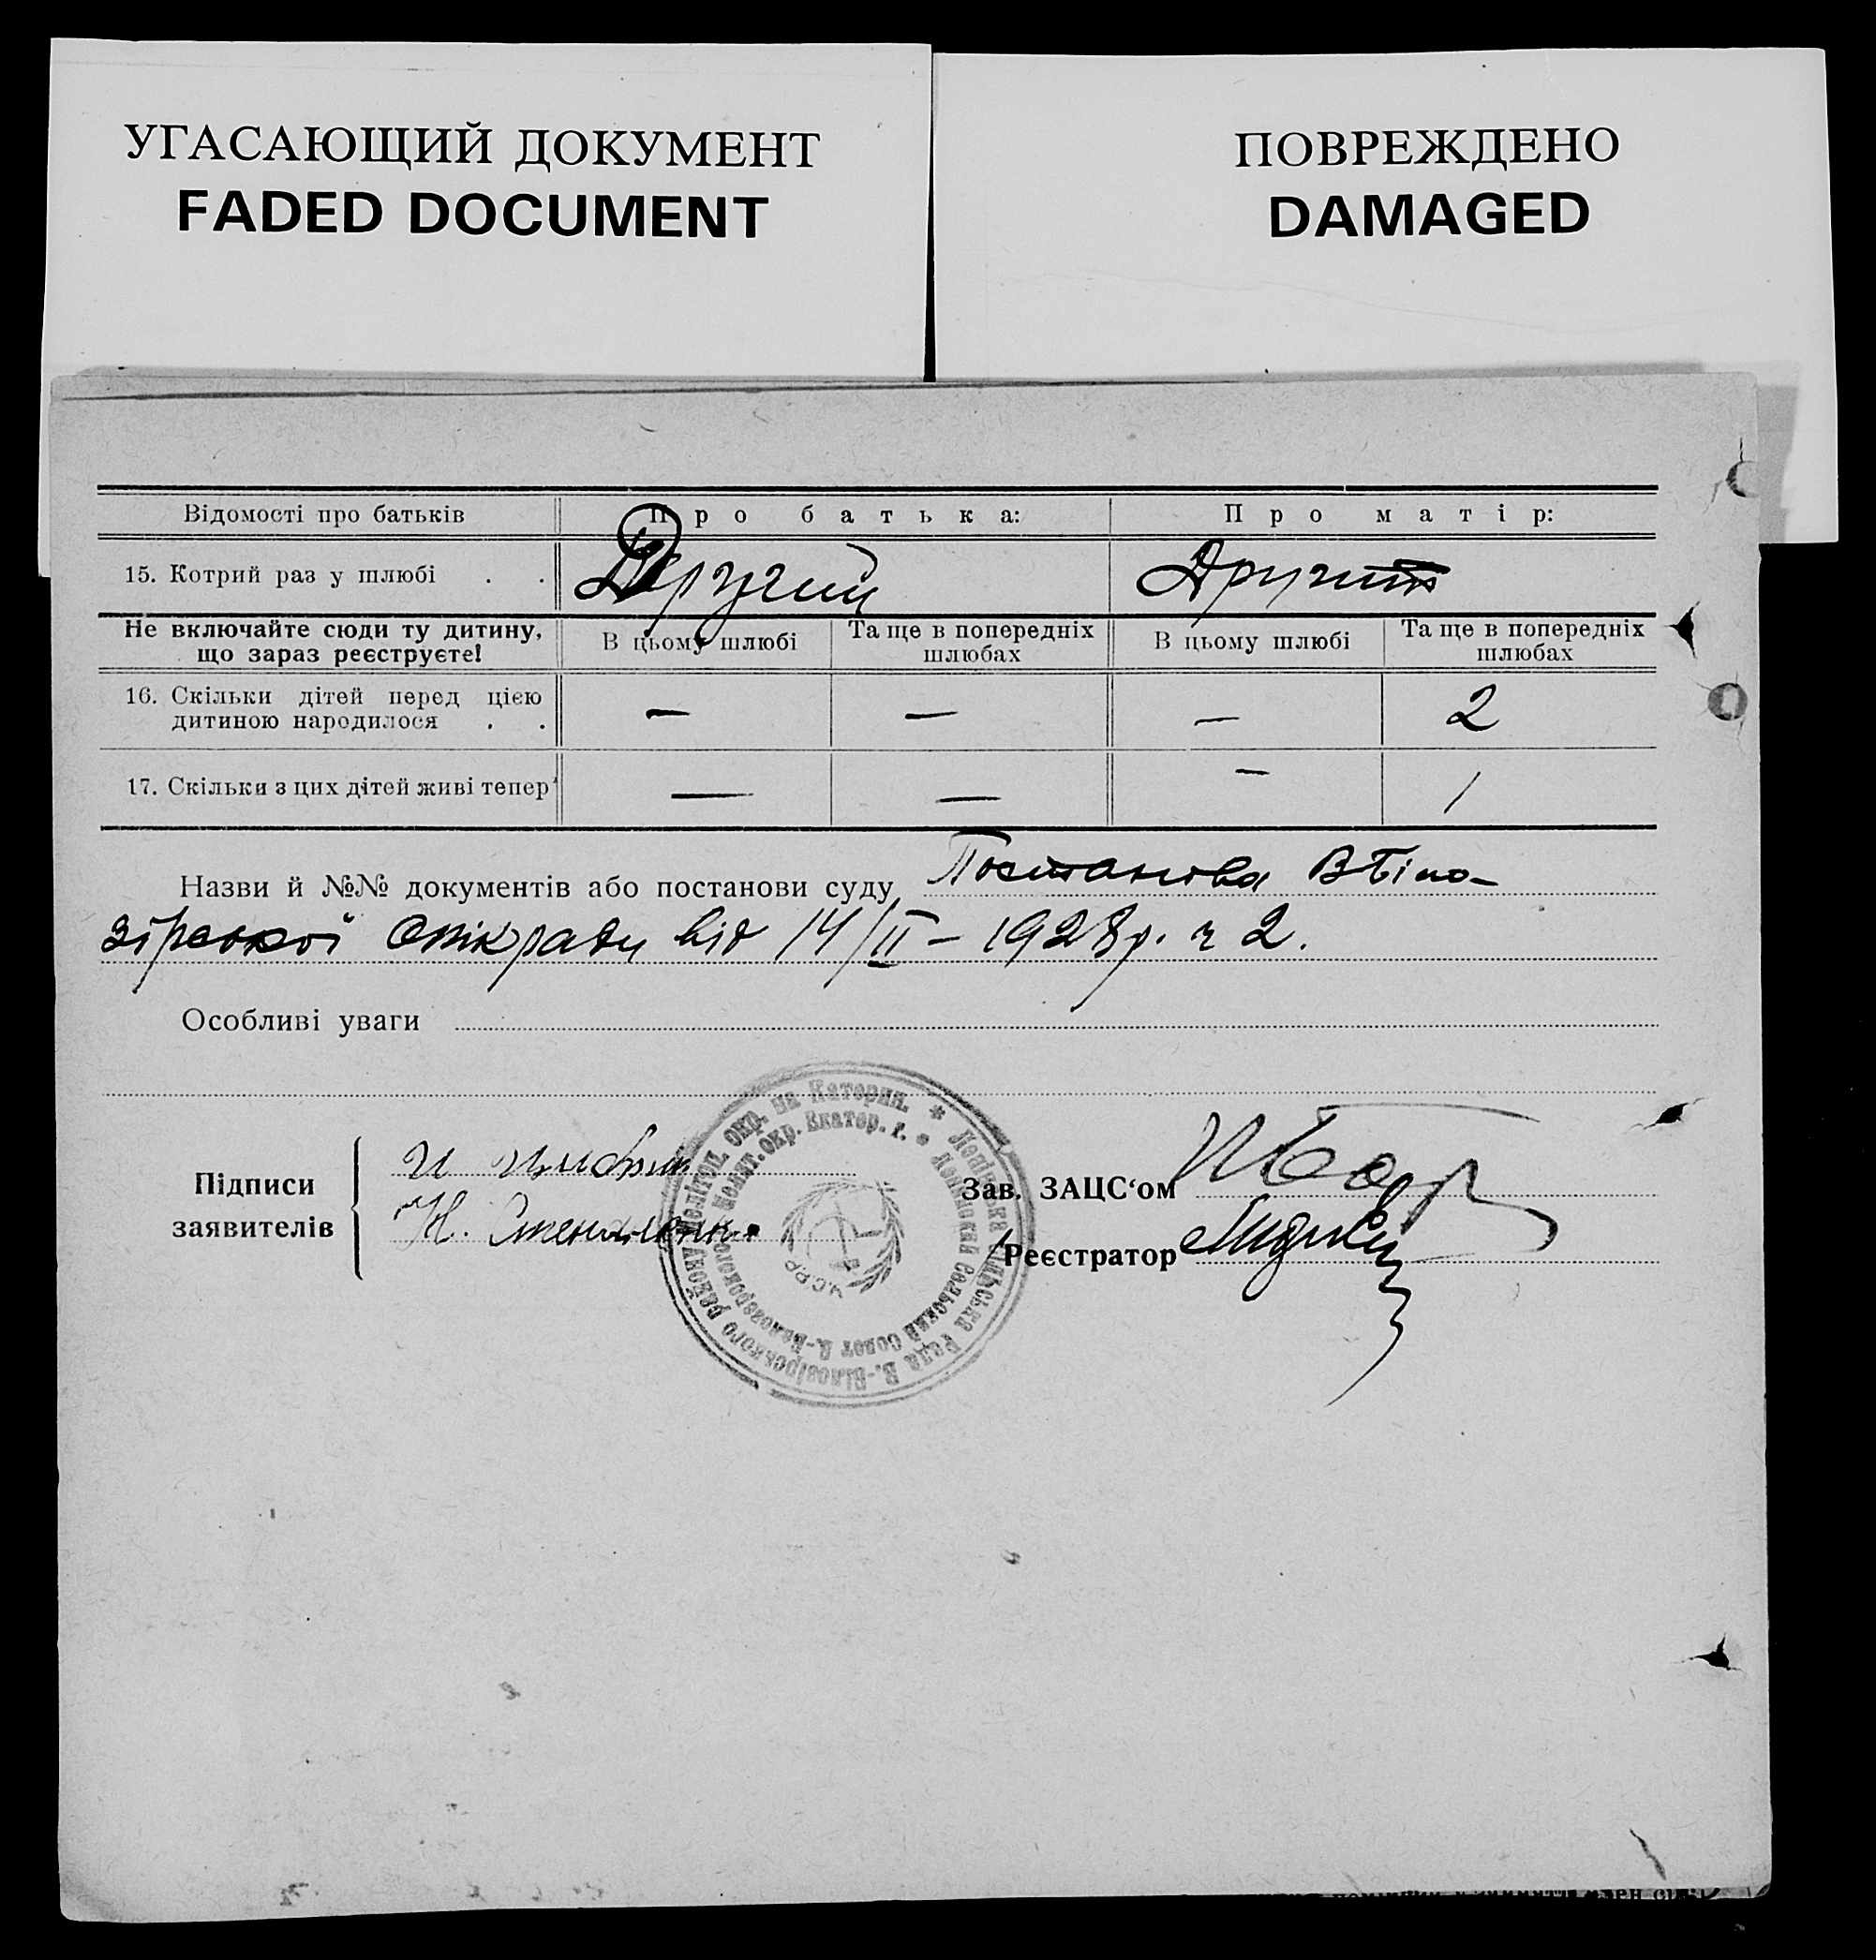 УГАСАЮЩИЙ ДОКУМЕНТ
FADED DOCUMENT
ПОВРЕЖДЕНО
DAMAGED
Відомості про батьків Про батька: Про матір:
15. Котрий раз у шлюбі . . Другий Другий
Не включайте сюди ту дитину, що зараз реєструєте! В цьому шлюбі Та ще в попередніх шлюбах В цьому шлюбі Та ще в попередніх шлюбах
16. Скільки дітей перед цією дитиною народилося . . — — — 2
17. Скільки з цих дітей живі тепер — — — 1
Назви й №№ документів або постанови суду Постанова ВБіло-
зірської Опікради від 14/II – 1928р. ч 2.
Особливі уваги
Підписи заявителів
Н.
Зав. ЗАЦС‘ом
Реєстратор
Мелітоп. окр. на Катерин. * Сільська Рада В.-Білозірського району
Мелит. окр. Екатер. г. • Сельский Совет В.-Белозерского
У.С.Р.Р.